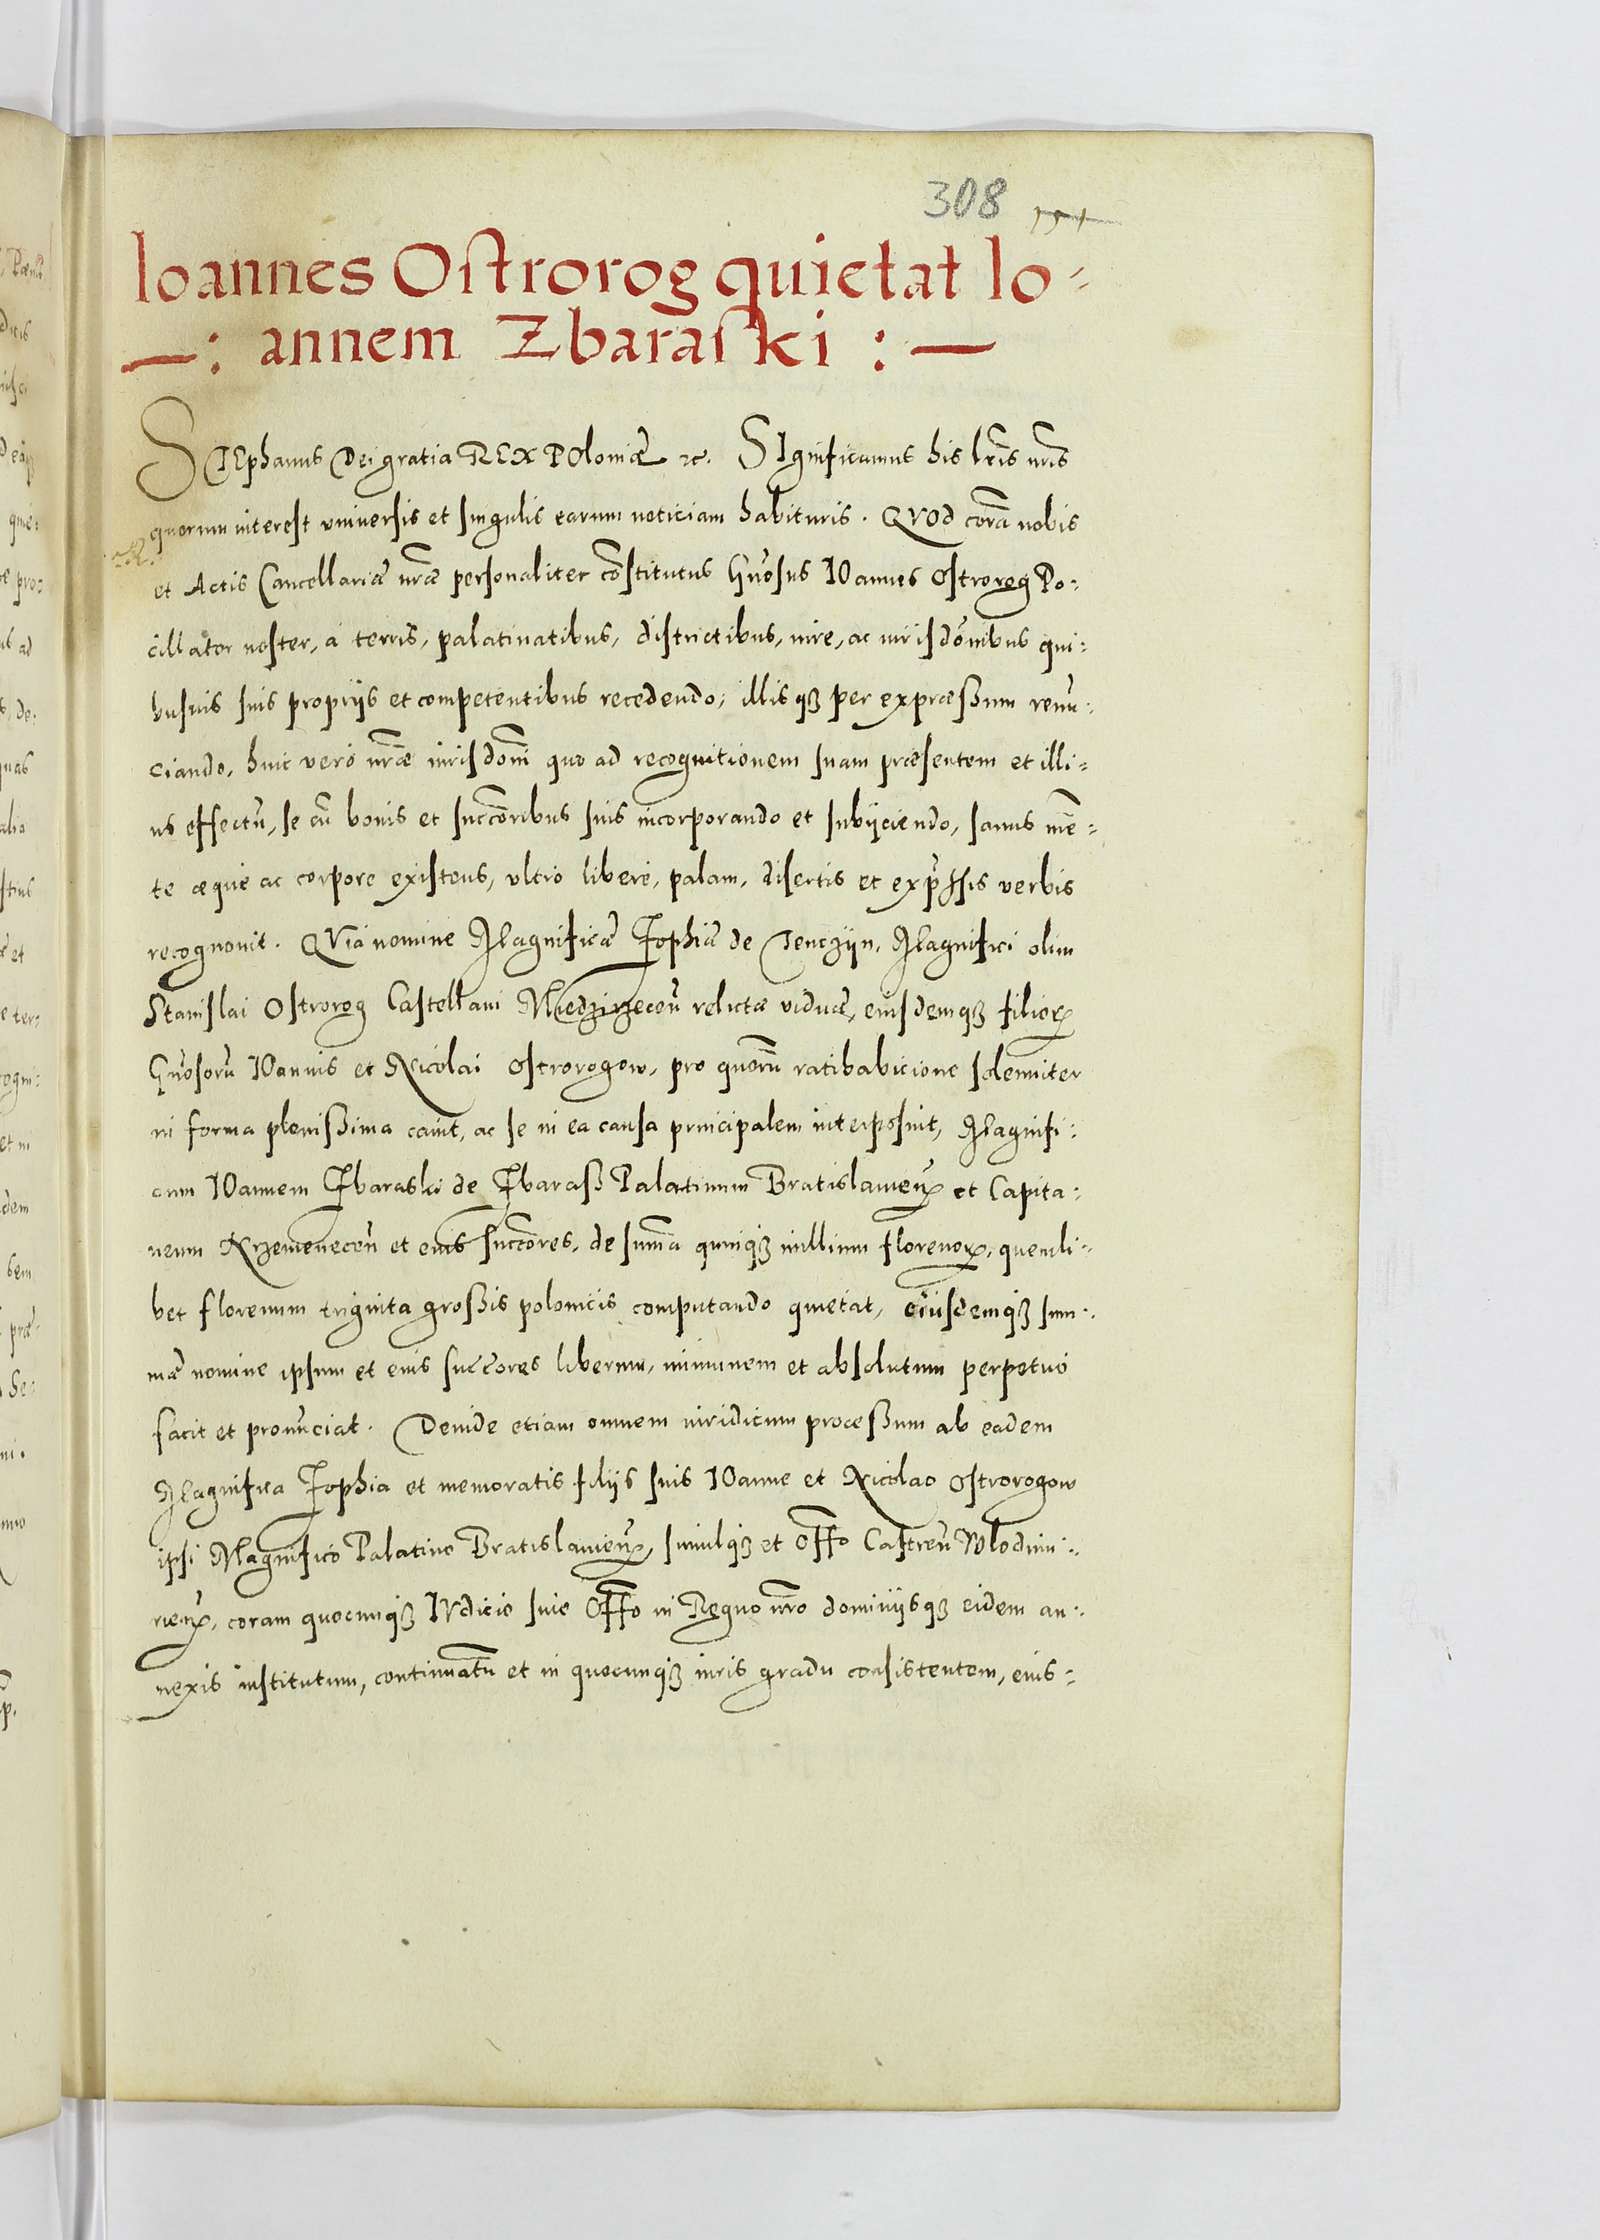 308
Ioannes Ostrorog quietat Io-
—: annem Zbaraski :—
STEphanus Dei gratia REX POloniæ etc. SIgnificamus his lr̃is nr̃is
quorum interest vniuersis et singulis earum noticiam habituris. QVOd corã nobis
et Actis Cancellariæ nr̃æ personaliter cõstitutus Gñosus IOannes Ostrorog Po-
cillator noster, a terris, palatinatibus, districtibus, iure, ac iurisdõnibus qui-
busuis suis proprijs et competentibus recedendo, illisqȝ per expræßum renũ-
ciando, huic verò nr̃æ iurisdõni quo ad recognitionem suam præsentem et illi-
us effectũ, se cũ bonis et succẽoribus suis incorporando et subijciendo, sanus mẽ-
te æque ac corpore existens, vltro libere, palam, disertis et exp̃ssis verbis
recognouit. QVia nomine Magnificæ Zophiæ de Tenczijn, Magnifici olim
Stanislai Ostrorog Castellani Miedzirzeceñ relictæ viduæ, eiusdemqȝ filiorꝝ
Gñosorũ IOannis et Nicolai Ostrorogow, pro quorũ ratihabicione solenniter
in forma plenißima cauit, ac se in ea causa principalem interposuit, Magnifi-
cum IOannem Zbaraski de Zbaraß Palatinum Bratislaueñ et Capita-
neum Krzemeneceñ et eius succẽores, de sum̃a quinqȝ millium florenorꝝ, quemli-
bet florenum triginta großis polonicis computando quietat, eiusdemqȝ sum-
mæ nomine ipsum et eius succẽores liberum, immunem et absolutum perpetuò
facit et pronũciat. Deinde etiam omnem iuridicum proceßum ab eadem
Magnifica Zophia et memoratis filijs suis IOanne et Nicolao Ostrorogow
ipsi Magnifico Palatino Bratislaueñ, simulqȝ et Offo Castreñ Wlodimi-
rieñ, coram quocunqȝ IVdicio siue Offo in Regno nr̃o dominijsqȝ eidem an-
nexis institutum, continuatũ et in quocunqȝ iuris gradu consistentem, eius-